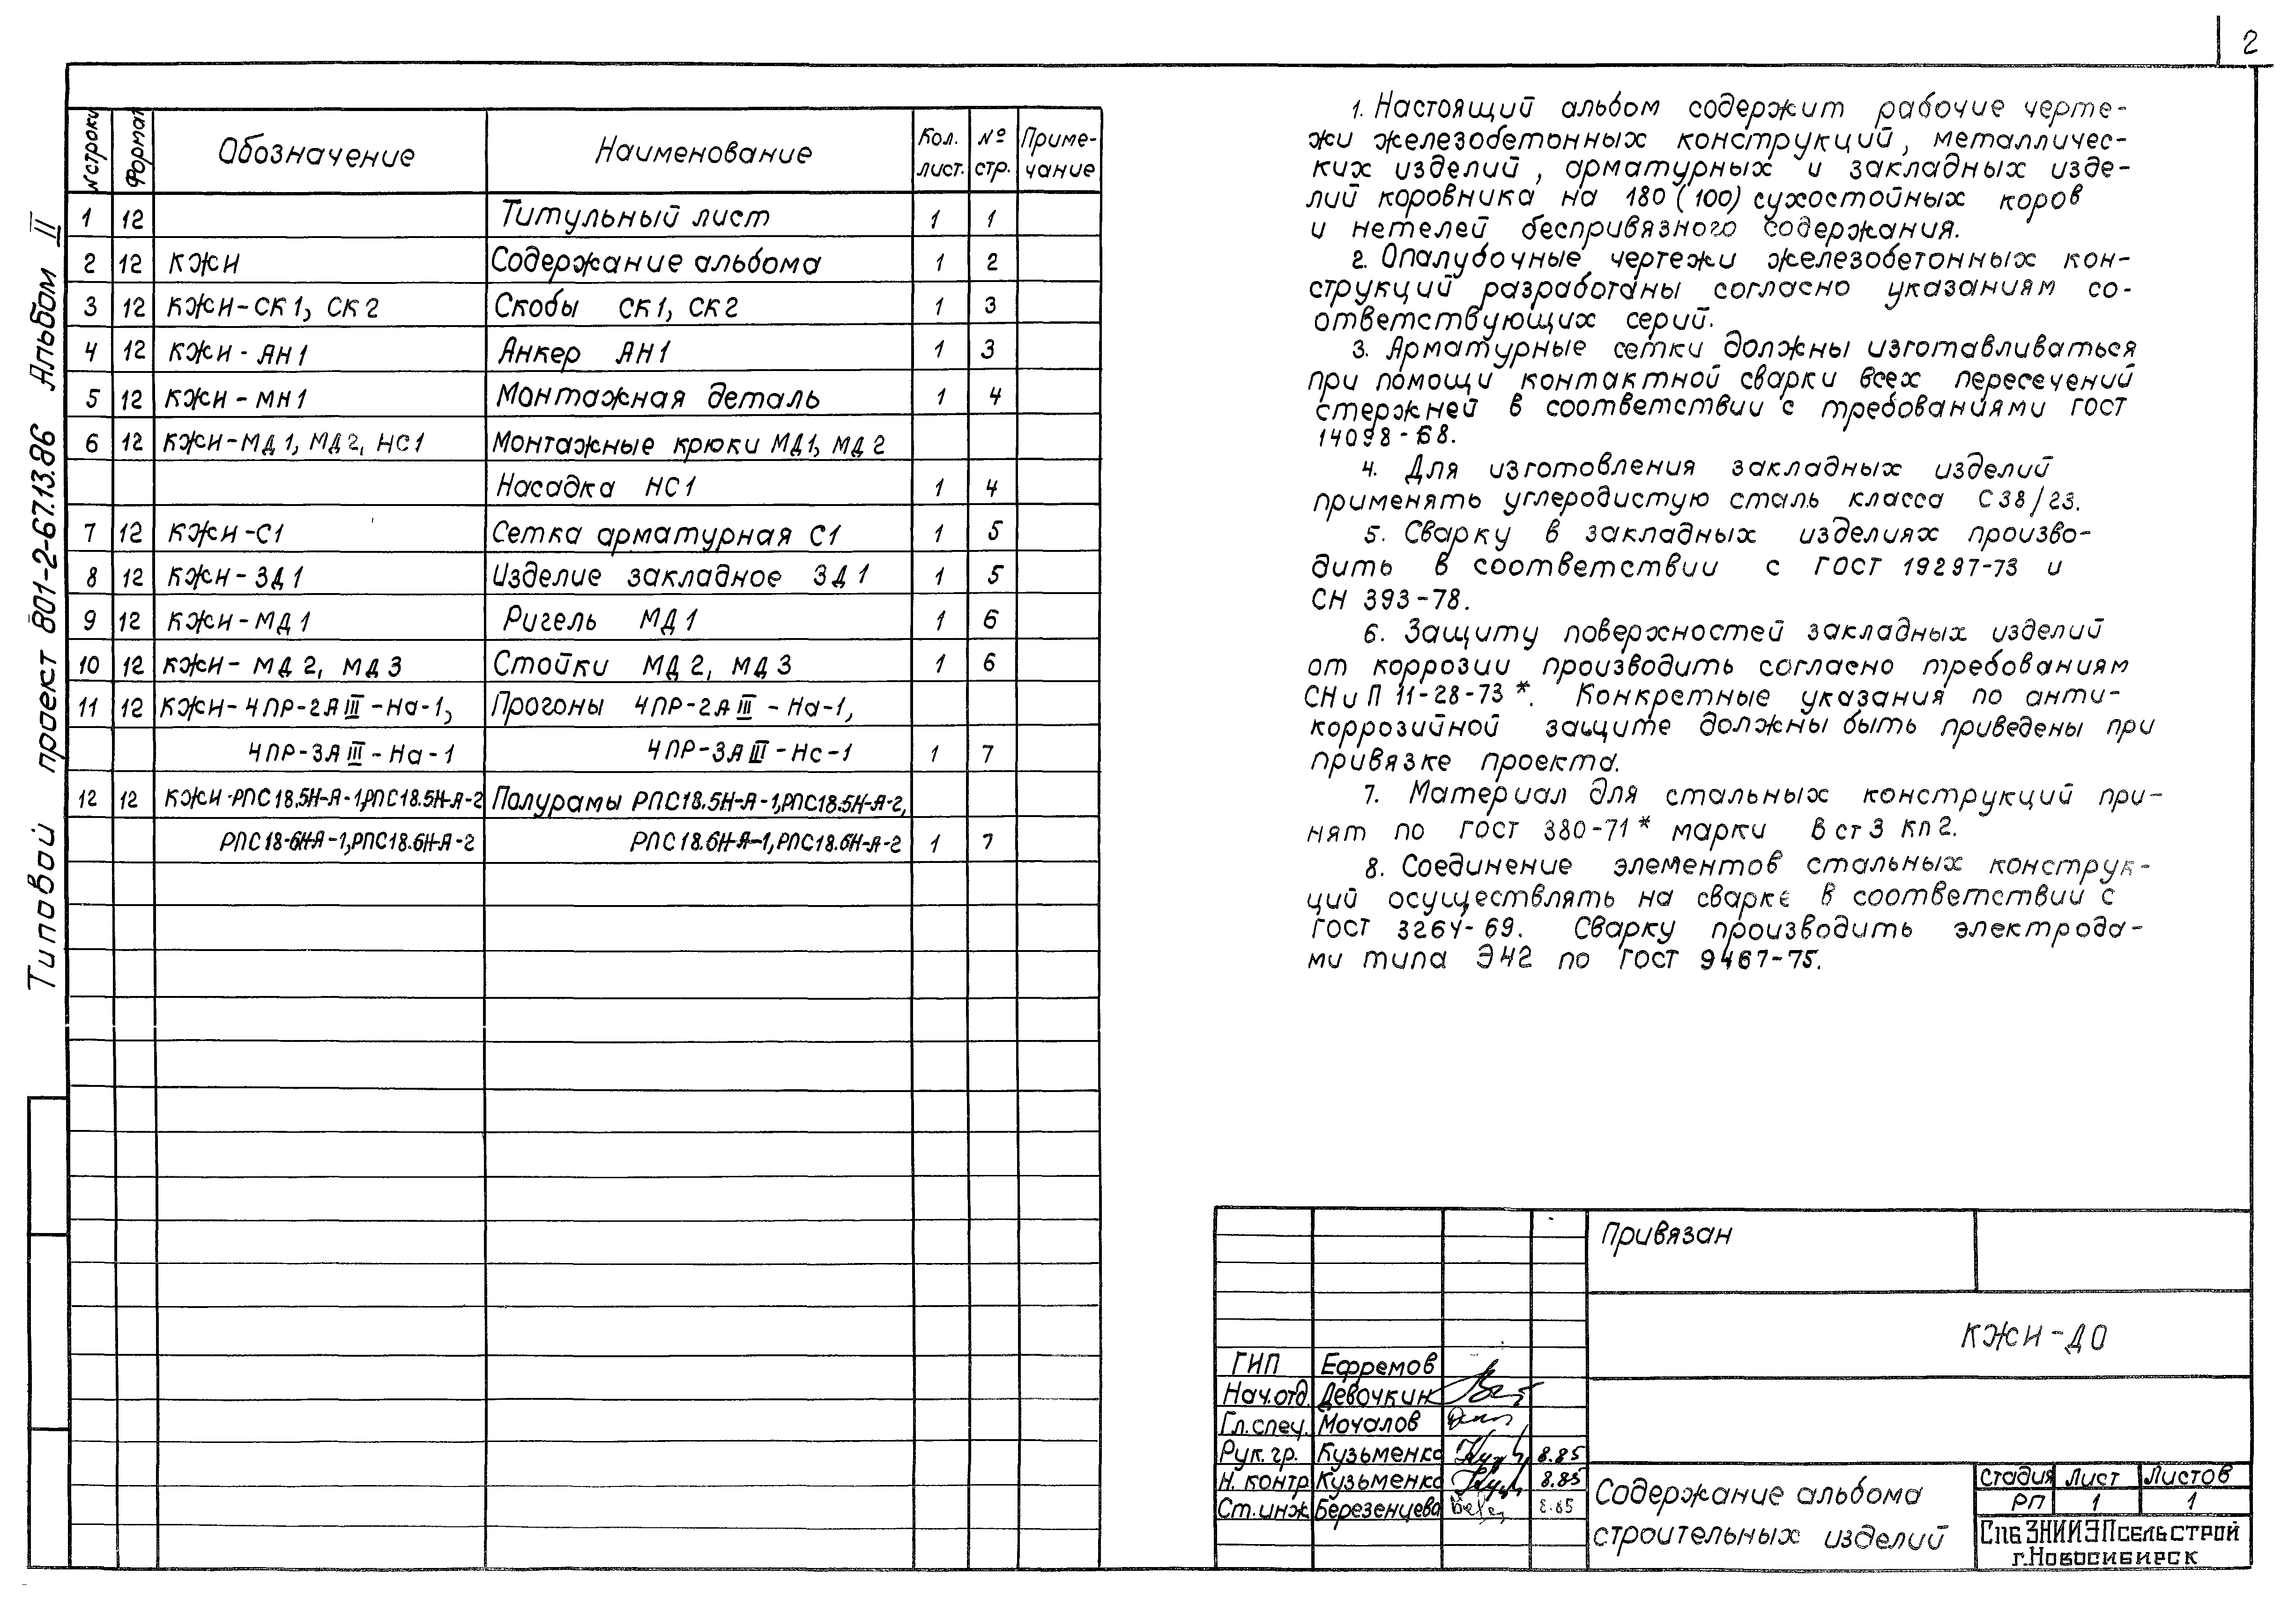 2
Типовой проект 801-2-67.13.86 Альбом II
N строки Формат Обозначение Наименование Кол. лист. № стр. Приме-чание
1 12 Титульный лист 1 1
2 12 КЖИ Содержание альбома 1 2
3 12 КЖИ-СК1, СК2 Скобы СК1, СК2 1 3
4 12 КЖИ-АН1 Анкер АН1 1 3
5 12 КЖИ-МН1 Монтажная деталь 1 4
6 12 КЖИ-МД1, МД2, НС1 Монтажные крюки МД1, МД2
Насадка НС1 1 4
7 12 КЖИ-С1 Сетка арматурная С1 1 5
8 12 КЖИ-ЗД1 Изделие закладное ЗД1 1 5
9 12 КЖИ-МД1 Ригель МД1 1 6
10 12 КЖИ-МД2, МД3 Стойки МД2, МД3 1 6
11 12 КЖИ-4ПР-2АIII-На-1, Прогоны 4ПР-2АIII-На-1,
4ПР-3АIII-На-1 4ПР-3АIII-Нс-1 1 7
12 12 КЖИ-РПС18.5Н-А-1,РПС18.5Н-А-2 Полурамы РПС18.5Н-А-1,РПС18.5Н-А-2,
РПС18-6Н-А-1,РПС18.6Н-А-2 РПС18.6Н-А-1,РПС18.6Н-А-2 1 7
1. Настоящий альбом содержит рабочие черте-
жи железобетонных конструкций, металличес-
ких изделий, арматурных и закладных изде-
лий коровника на 180 (100) сухостойных коров
и нетелей беспривязного содержания.
2. Опалубочные чертежи железобетонных кон-
струкций разработаны согласно указаниям со-
ответствующих серий.
3. Арматурные сетки должны изготавливаться
при помощи контактной сварки всех пересечений
стержней в соответствии с требованиями ГОСТ
14098-68.
4. Для изготовления закладных изделий
применять углеродистую сталь класса С38/23.
5. Сварку в закладных изделиях произво-
дить в соответствии с ГОСТ 19297-73 и
СН 393-78.
6. Защиту поверхностей закладных изделий
от коррозии производить согласно требованиям
СНиП 11-28-73*. Конкретные указания по анти-
коррозийной защите должны быть приведены при
привязке проекта.
7. Материал для стальных конструкций при-
нят по ГОСТ 380-71* марки Вст3 кп2.
8. Соединение элементов стальных конструк-
ций осуществлять на сварке в соответствии с
ГОСТ 3264-69. Сварку производить электрода-
ми типа Э42 по ГОСТ 9467-75.
Привязан
КЖИ-Д0
ГИП Ефремов
Нач.отд. Девочкин
Гл.спец. Мочалов
Рук.гр. Кузьменко 8.85
Н. контр Кузьменко 8.85
Ст.инж Березенцева 8.85
Содержание альбома
строительных изделий
Стадия Лист Листов
РП 1 1
СибЗНИИЭПсельстрой
г.Новосибирск